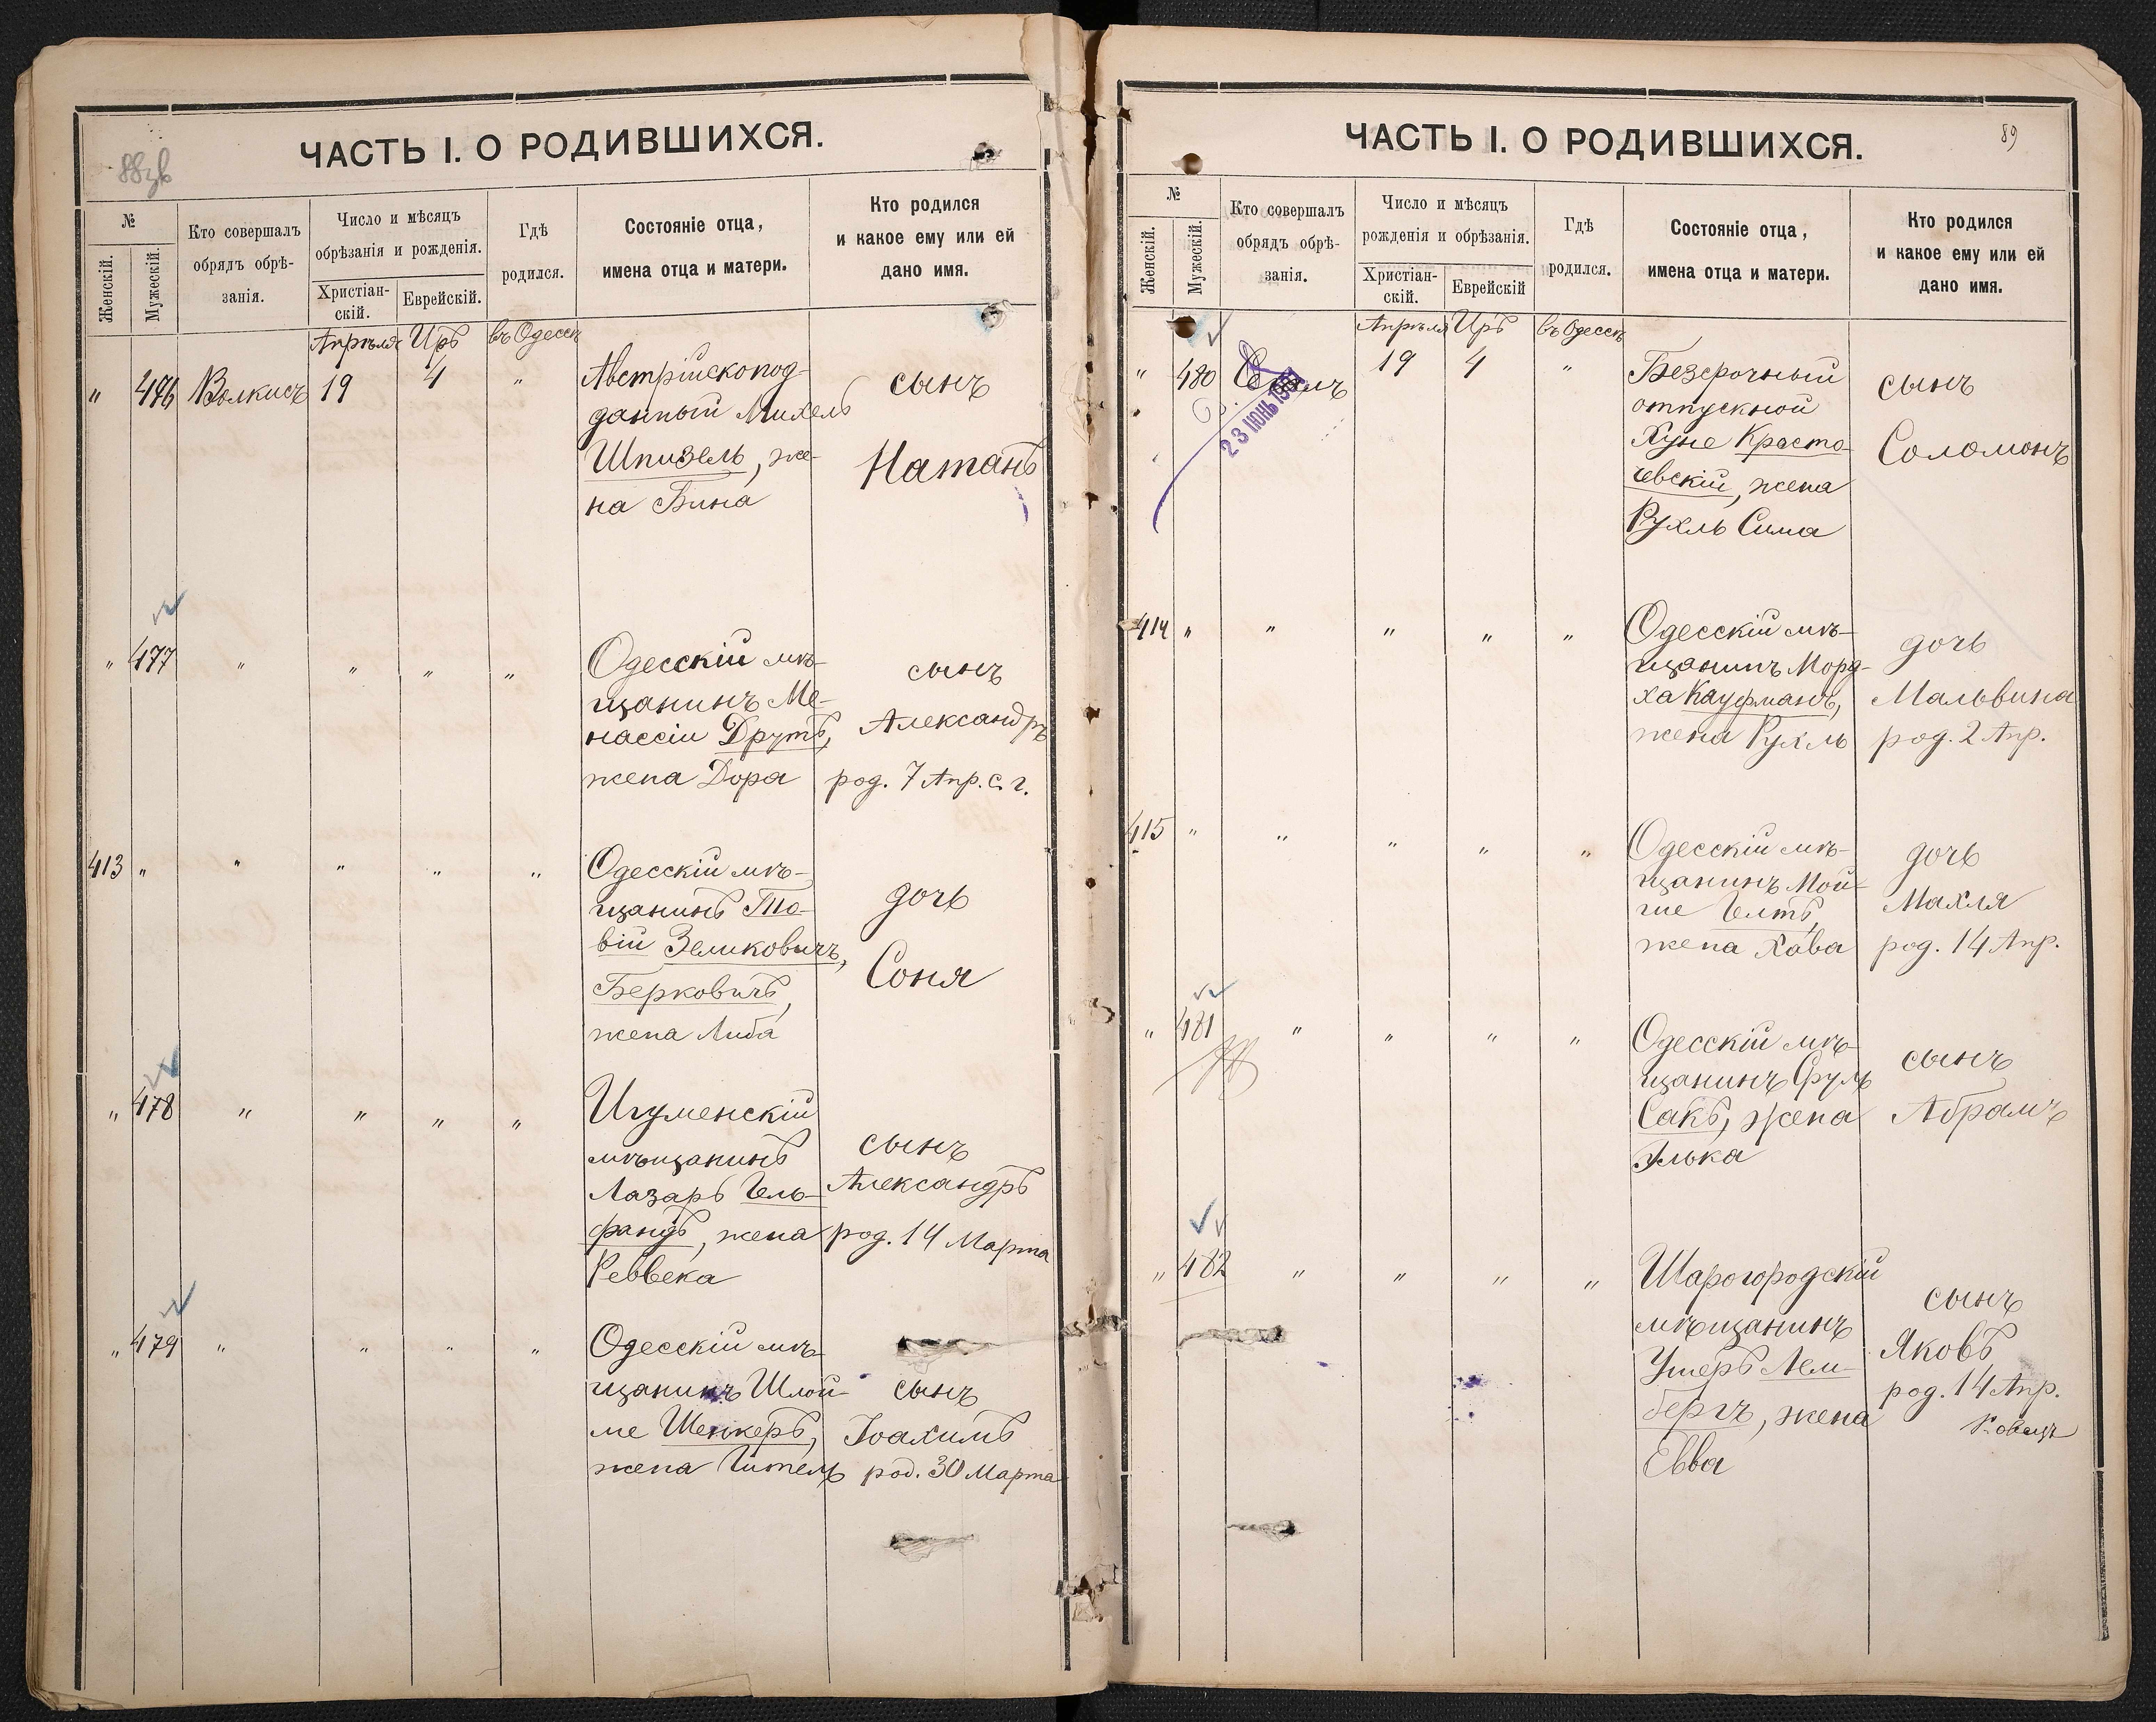 ЧАСТЬ I. О РОДИВШИХСЯ.
№
Женскій.
Мужескій.
Кто совершалъ
обрядъ обрѣ-
занія.
Число и мѣсяцъ
обрѣзанія и рожденія.
Христіан-
скій.
Еврейскій.
Гдѣ
родился.
Состояніе отца,
имена отца и матери.
Кто родился
и какое ему или ей
дано имя.
Апрѣля Иръ въ Одессѣ
" 476 Волкисъ 19 4 "
Австрійскопод-
данный Михель
Шпизель, же-
на Бина
сынъ
Натанъ
" 477 " " " "
Одесскій мѣ-
щанинъ Ме-
нассіи Друтъ,
жена Дора
сынъ
Александръ
род. 7 Апр. с. г.
413 " " " " "
Одесскій мѣ-
щанинъ То-
вій Зеликовичъ,
Берковичъ,
жена Либа
дочь
Соня
" 478 " " " "
Игуменскій
мѣщанинъ
Лазарь Гель-
фандъ, жена
Реввека
сынъ
Александръ
род. 14 Марта
" 479 " " " "
Одесскій мѣ-
щанинъ Шлой-
ме Шенкеръ,
жена Гитель
сынъ
Іоахимъ
род. 30 Марта
ЧАСТЬ I. О РОДИВШИХСЯ.
89
№
Женскій.
Мужескій.
Кто совершалъ
обрядъ обрѣ-
занія.
Число и мѣсяцъ
рожденія и обрѣзанія.
Христіан-
скій.
Еврейскій
Гдѣ
родился.
Состояніе отца,
имена отца и матери.
Кто родился
и какое ему или ей
дано имя.
Апрѣля Иръ въ Одессѣ
" 480 19 4 "
23 ІЮНЬ
Безсрочный
отпускной
Хуне Красто-
чевскій, жена
Рухль Сима
сынъ
Соломонъ
414 " " " " "
Одесскій мѣ-
щанинъ Морд-
ха Кауфманъ,
жена Рухль
дочь
Мальвина
род. 2 Апр.
415 " " " " "
Одесскій мѣ-
щанинъ Мой-
ше Гелтъ,
жена Хава
дочь
Махля
род. 14 Апр.
" 481 " " " "
Одесскій мѣ-
щанинъ Сруль
Сакъ, жена
Элька
сынъ
Абрамъ
" 482 " " " "
Шарогородскій
мѣщанинъ
Ушеръ Лем-
бергъ, жена
Евва
сынъ
Яковъ
род. 14 Апр.